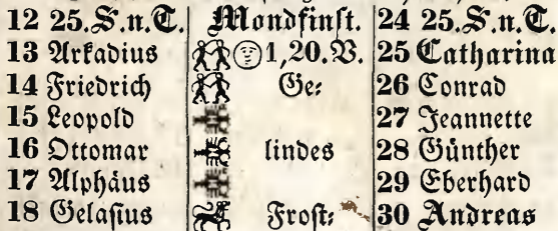 12 25.S.n.T. Mondfinst. 24 25.S.n.T.
13 Arkadius 1,20.V. 25 Catharina
14 Friedrich Ge: 26 Conrad
15 Leopold 27 Jeannette
16 Ottomar lindes 28 Günther
17 Alphäus 29 Eberhard
18 Gelasius Frost: 30 Andreas